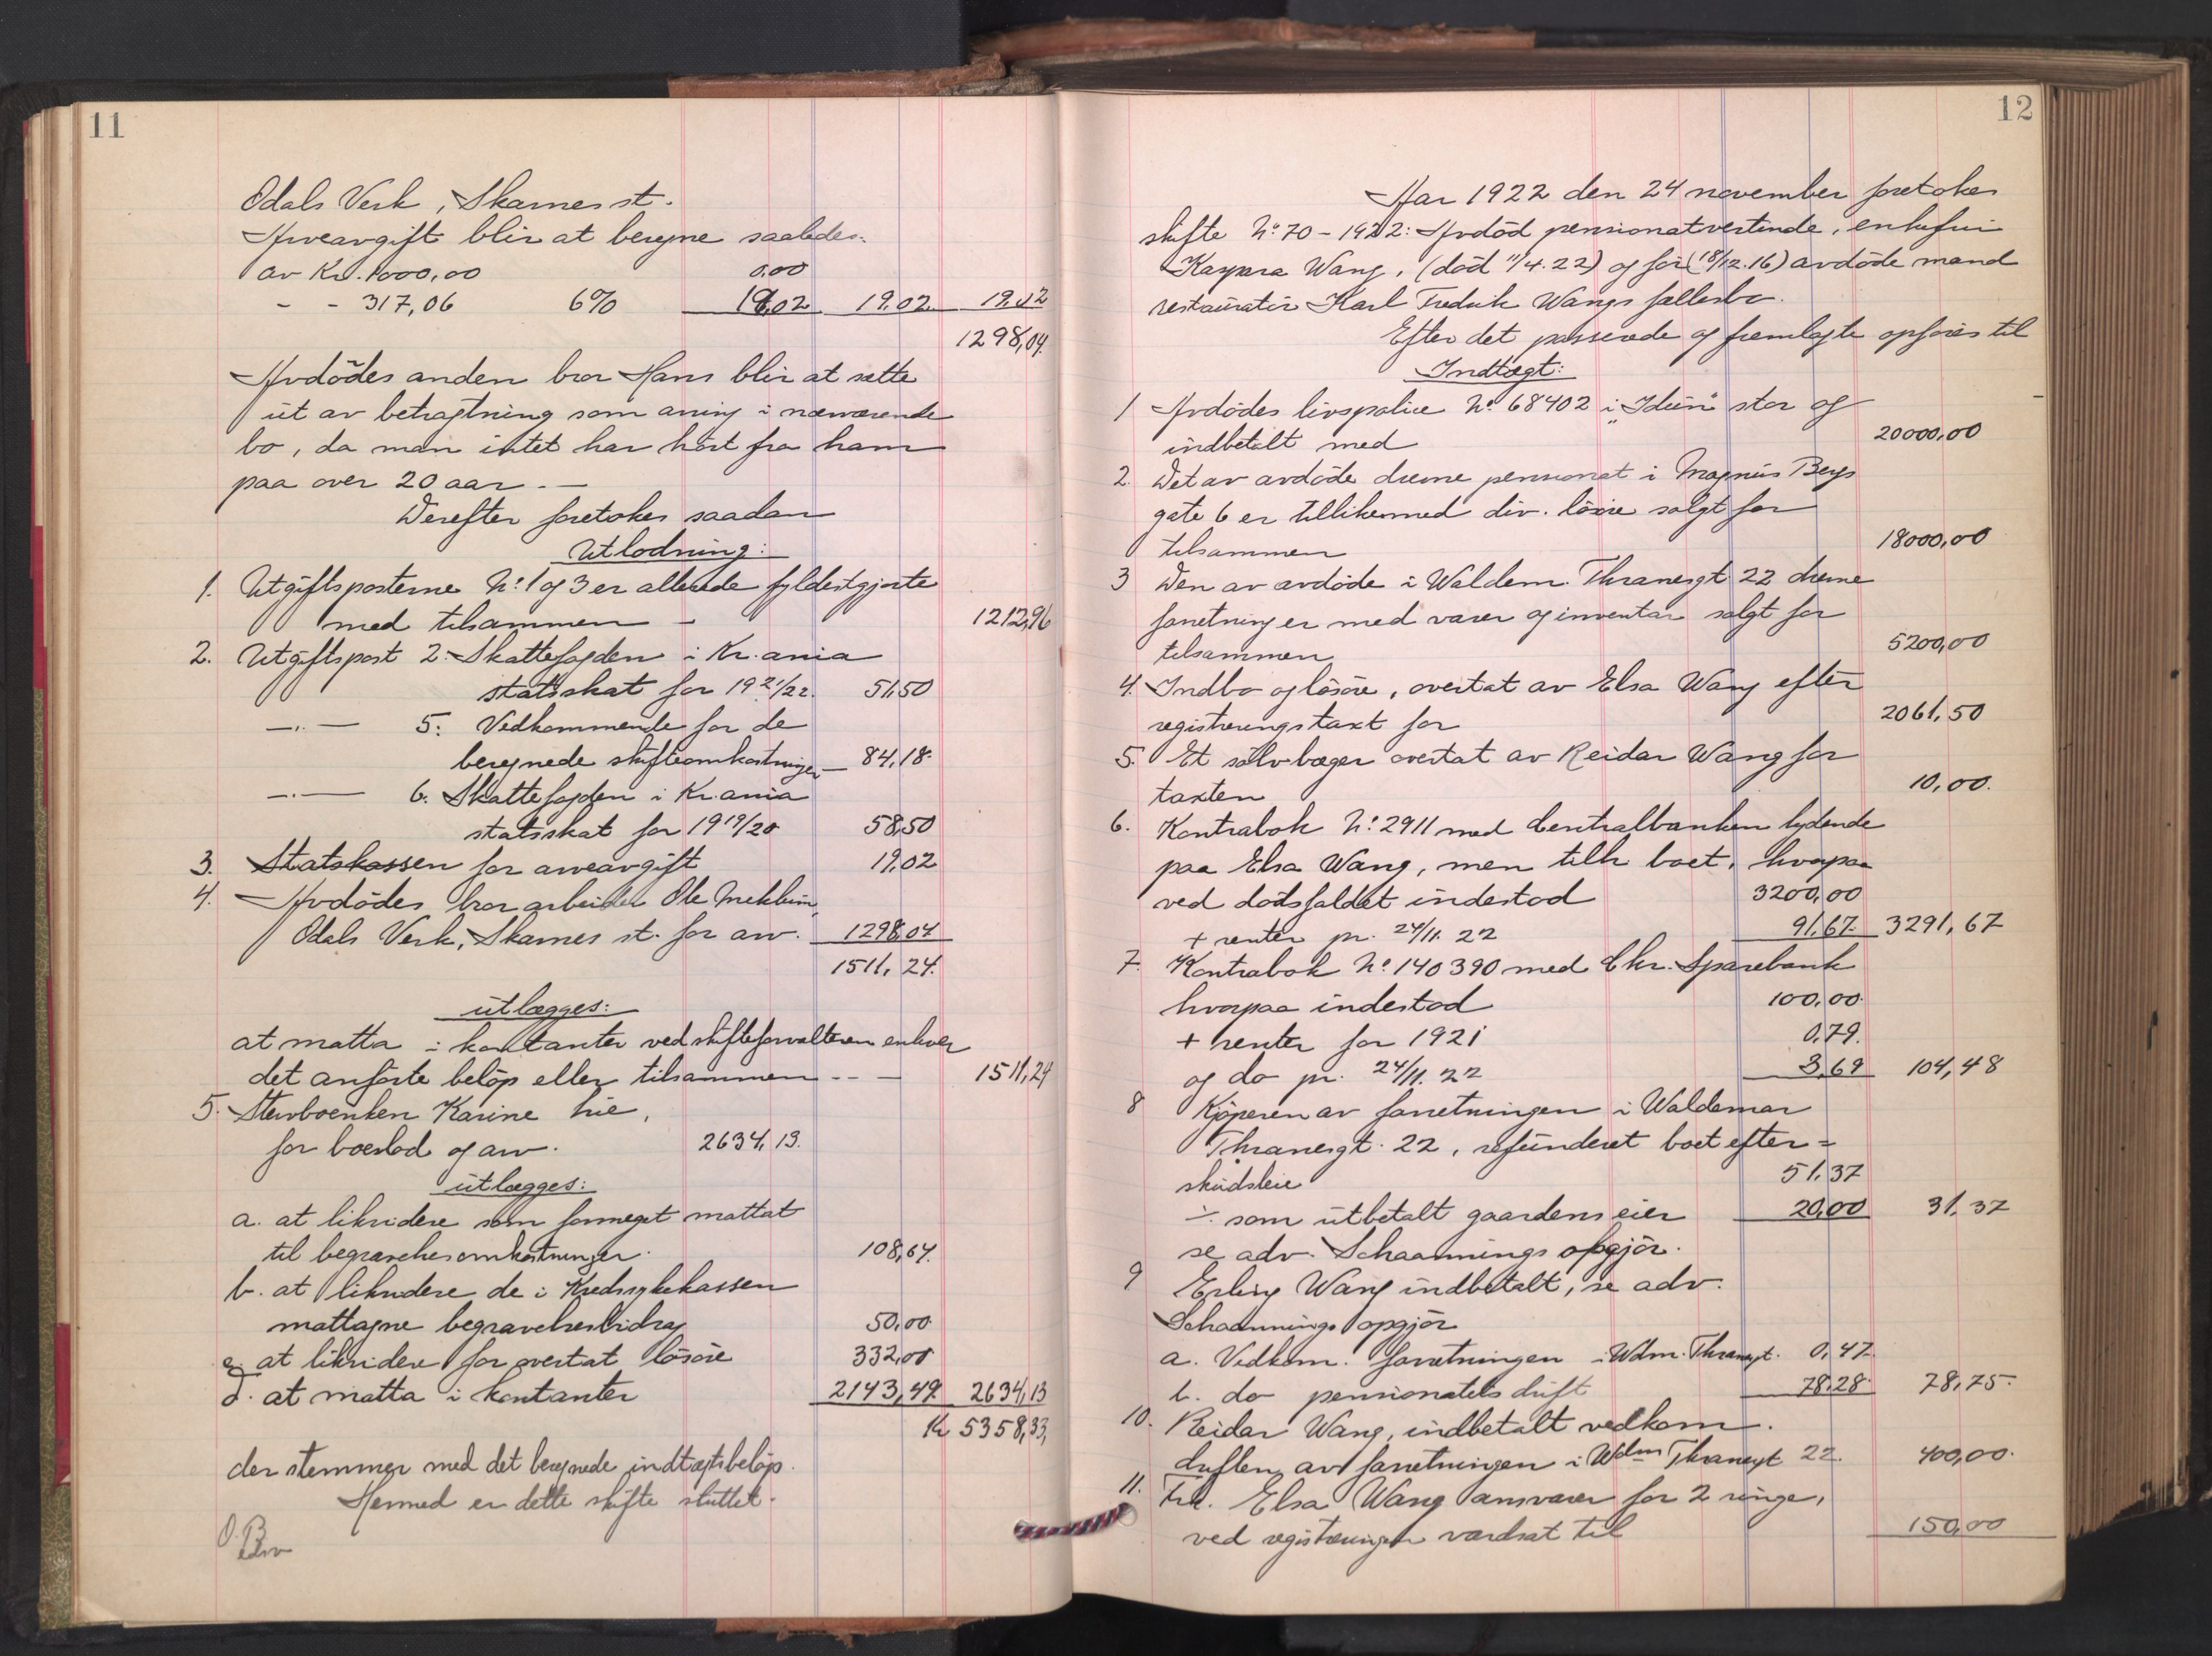 11
Odals Verk, Skarnes st.
Arveavgift blir at beregne saaledes:
av Kr. 1000,00 0,00
- - 317,06 6% 19,02 19,02 19,02
1298,04
Avdödes anden bror Hans blir at sætte
ut av betragtning som arving i nærværende
bo, da man intet har hört fra ham
paa over 20 aar. —
Derefter foretokes saadan
Utlodning:
1. Utgiftsposterne No 1 og 3 er allerede fyldestgjorte
med tilsammen - 1212,96
2. Utgiftspost 2: Skattefogden i Kr.ania
statsskat for 1921/22. 51,50
—„— 5: Vedkommende for de
beregnede skifteomkostninger — 84,18
—„— 6. Skattefogden i Kr.ania
statsskat for 1919/20 58,50
3. Statskassen for arveavgift 19,02
4. Avdödes bror arbeider Ole
Odals Verk, Skarnes st. for arv. 1298,04
1511,24.
utlægges:
at motta i kontanter ved skifteforvalteren enhver
det anförte belöp eller tilsammen - - — 1511,24
5. Sterboenken Karine Lie,
for boeslod og arv. 2634,13.
utlægges:
a. at likvidere som forneget mottat
til begravelsesomkostninger. 108,64.
b. at likvidere de i Kredssykekassen
mottagne begravelsesbidrag 50,00
c. at likvidere for overtat lösöre 332,00
d. at motta i kontanter 2143,49 2634,13
Kr 5358,33,
der stemmer med det beregnede indtægtsbelöp.
Hermed er dette skifte sluttet.
12
Aar 1922 den 24 november foretokes
skifte No 70 - 1922: Avdöd pensionatvertinde, enkefru
Kaspara Wang, (död 11/4.22) og för (18/12.16) avdöde mand
restauratör Karl Fredrik Wangs fællesbo.
Efter det passerede og fremlagte opföres til
Indtægt:
1 Avdödes livspolice No 68402 i „Idun" stor og
indbetalt med 20000,00
2. Det av avdöde drevne pensionat i Magnus Bergs
gate 6 er tillikemed div. lösöre solgt for
tilsammen 18000,00
3 Den av avdöde i Waldem. Thranesgt 22 drevne
forretning er med varer og inventar solgt for
tilsammen 5200,00
4. Indbo og lösöre, overtat av Elsa Wang efter
registreringstaxt for 2061,50
5. Et sölvbæger overtat av Reidar Wang for
taxten 10,00.
6. Kontrabok No 2911 med Centralbanken lydende
paa Elsa Wang, men tilh. boet, hvorpaa
ved dödsfaldet indestod 3200,00
+ renter pr. 24/11. 22 91,67. 3291,67
7. Kontrabok No 140390 med Chr. Sparebank
hvorpaa indestod 100,00.
+ renter for 1921 0,79.
og do pr. 24/11. 22 3,69 104,48
8 Kjöperen av forretningen i Waldemar
Thranesgt. 22, refunderet boet efter=
skudsleie 51,37
÷ som utbetalt gaardens eier 20,00 31,37
se adv. Schaannings opgjör.
9 Erling Wang indbetalt, se adv.
Schaannings opgjör
a. Vedkom. forretningen i Wdm. Thranesgt. 0,47.
b. do pensionatets drift 78,28 78,75.
10. Reidar Wang, indbetalt vedkom.
driften av forretningen i Wdm Thranesgt 22. 400,00.
11. Frk. Elsa Wang ansvarer for 2 ringe,
ved registreringen værdsat til 150,00